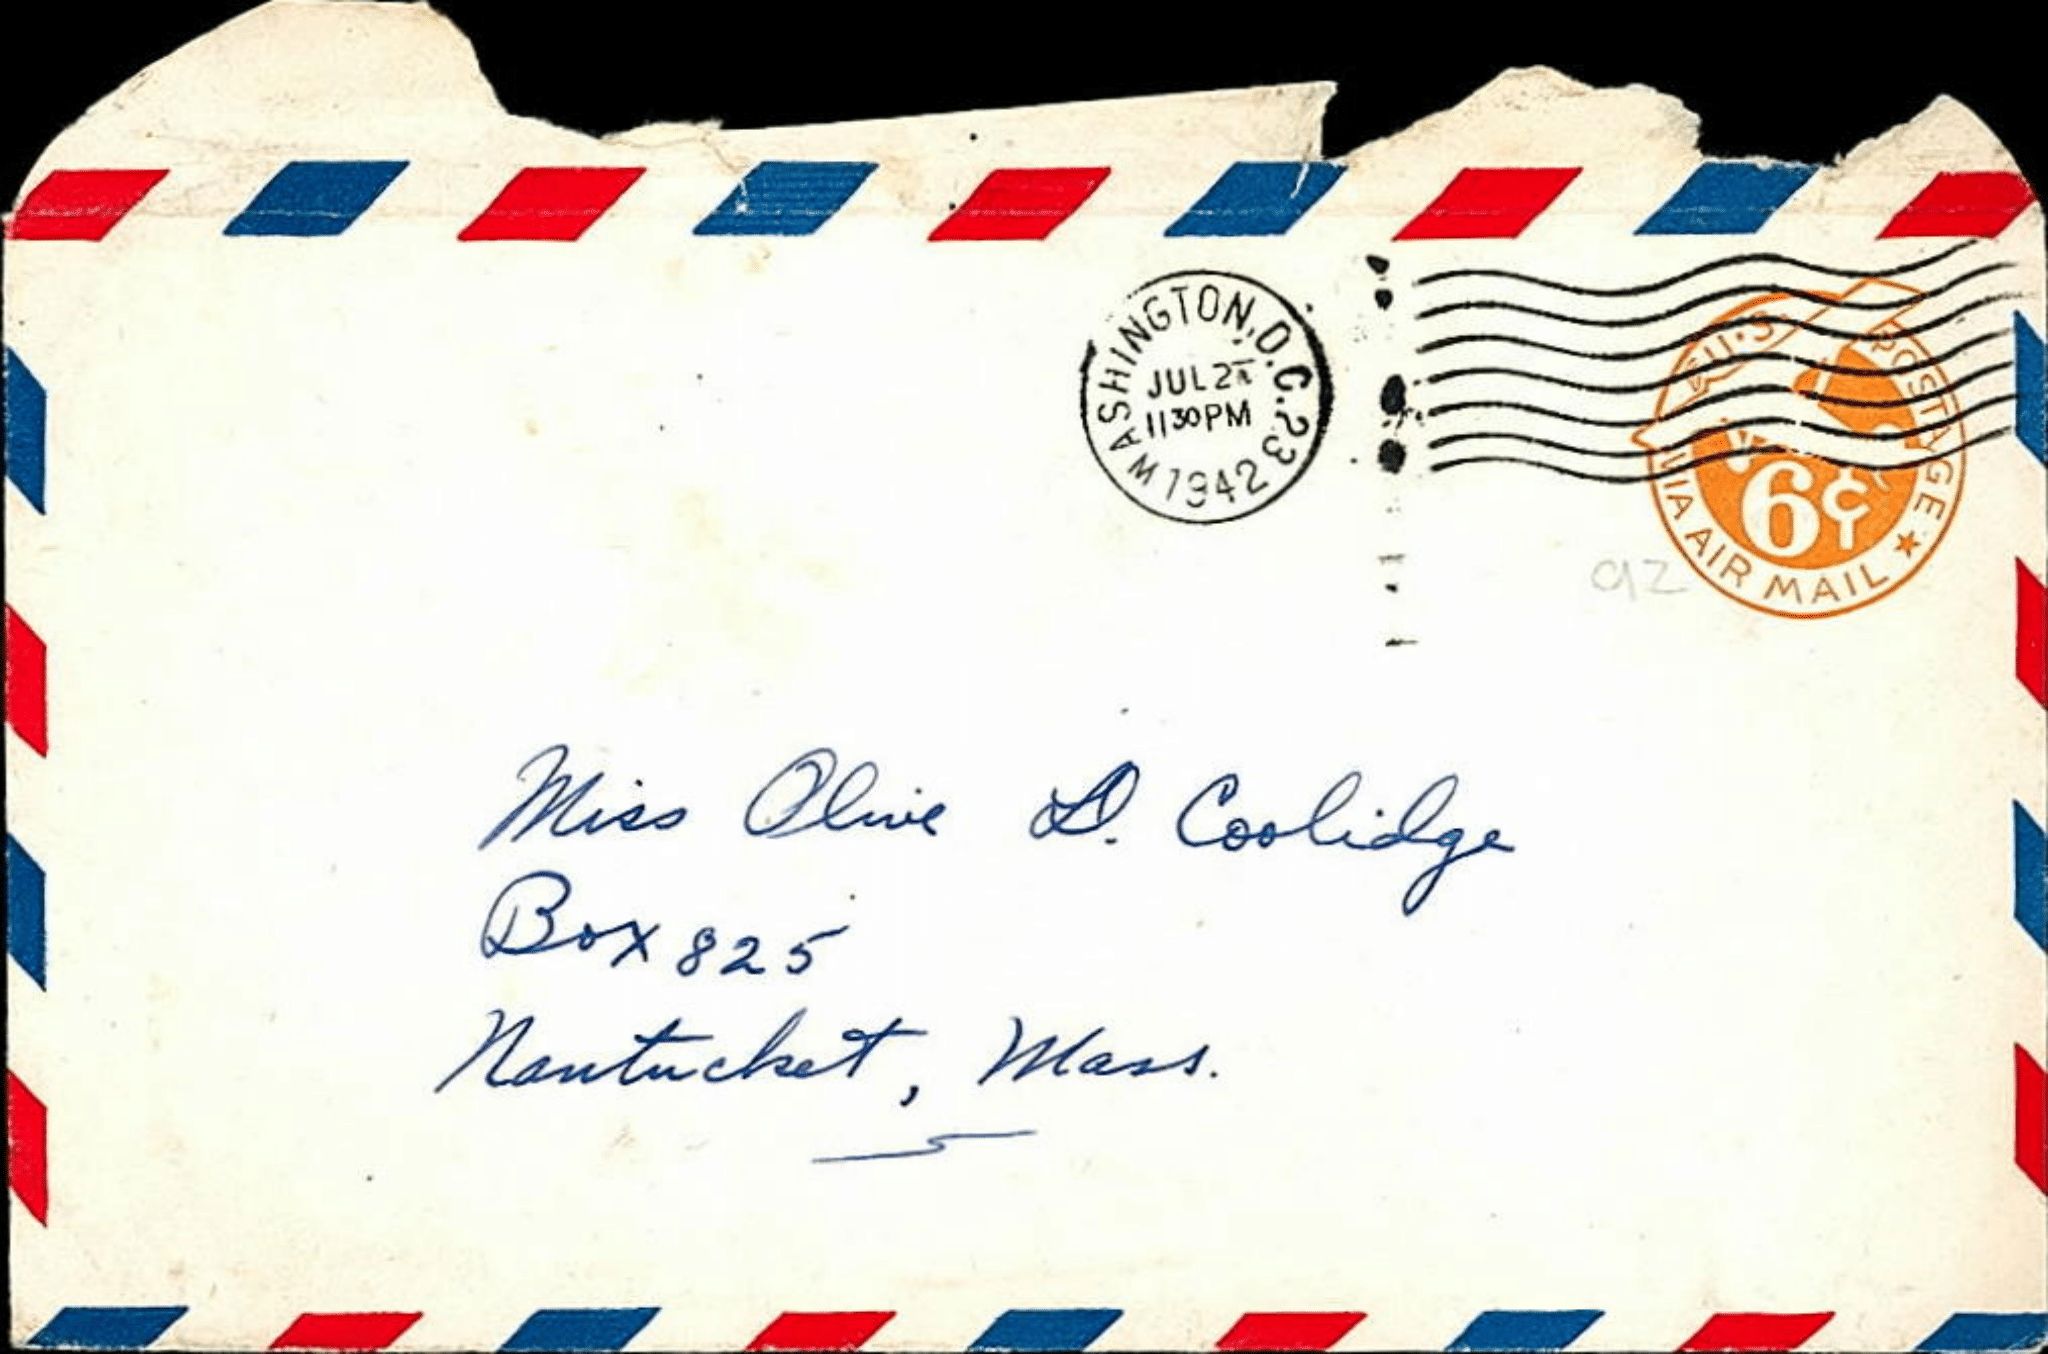 WASHINGTON, D.C. 23
JUL 2
1130 PM
1942
U.S. POSTAGE
6¢
VIA AIR MAIL
Miss Olive D. Coolidge
Box 825
Nantucket, Mass.